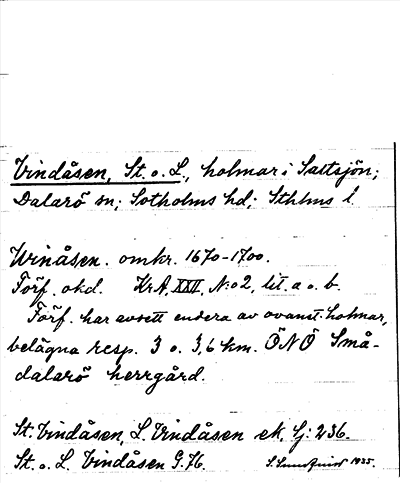 Vindåsen, St. o. L., holmar i Saltsjön;
Dalarö sn; Sotholms hd; Sthlms l.
Urnåsen. omkr. 1670-1700.
Förf. okd. KrA, XXII, N:o 2, lit. a o. b.
Förf. har avsett endera av ovanst. holmar,
belägna resp. 3 o. 3,6 km. ÖNÖ Små-
dalarö herrgård.
St. Vindåsen, L. Vindåsen ek. 236.
St. o. L. Vindåsen G. 76. 1935.